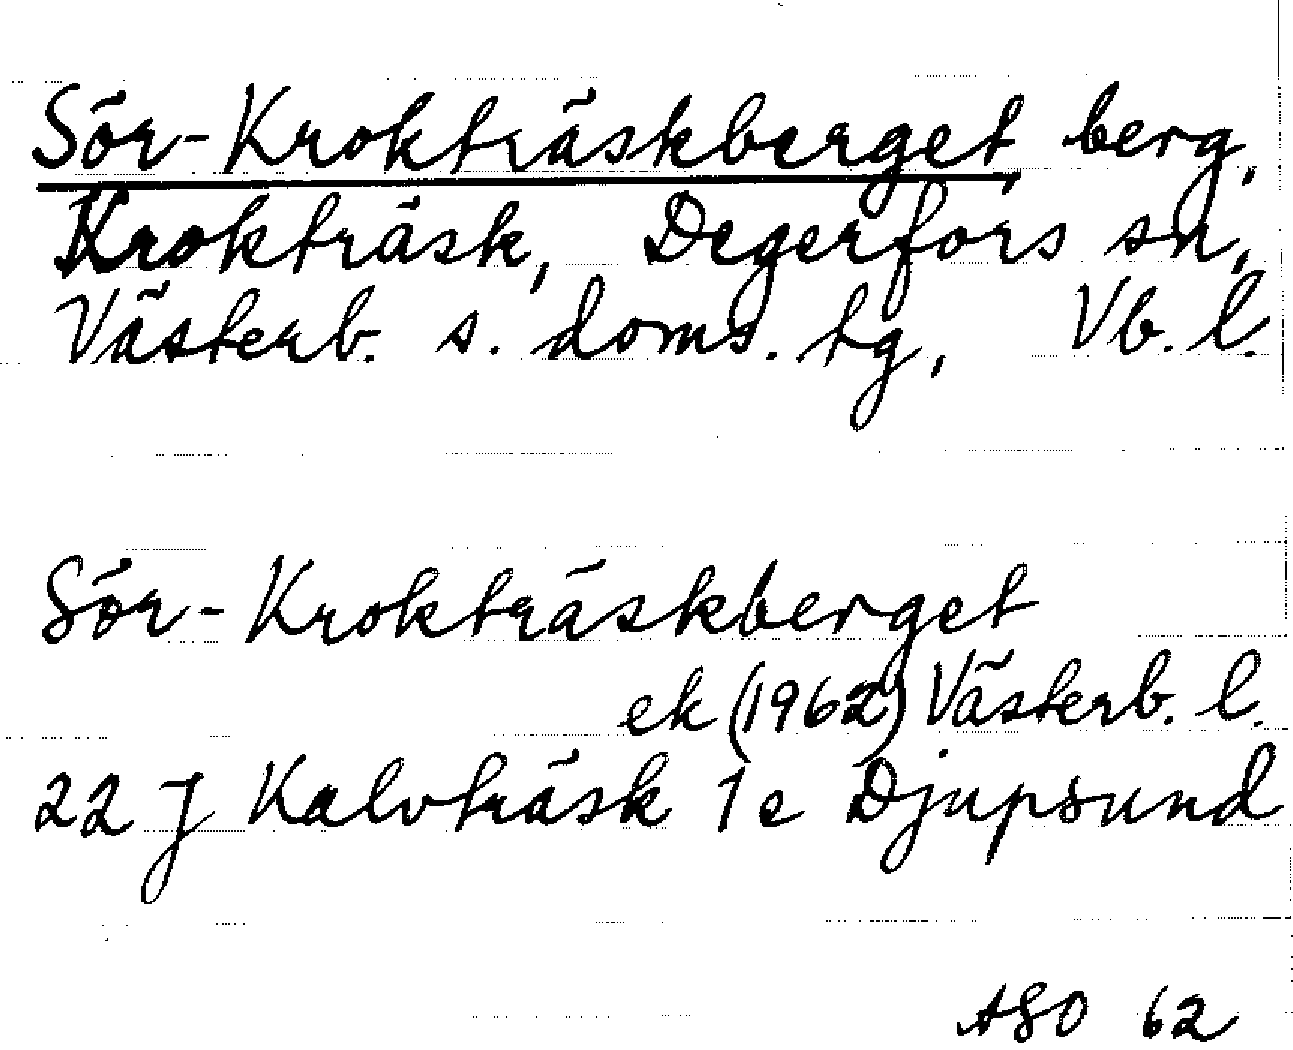 Sör-Krokträskberget, berg,
Krokträsk, Degerfors sn,
Västerb. s. doms. tg, Vb. l.
Sör-Krokträskberget
ek (1962) Västerb. l.
22 J Kalvträsk 1e Djupsund
ASO 62